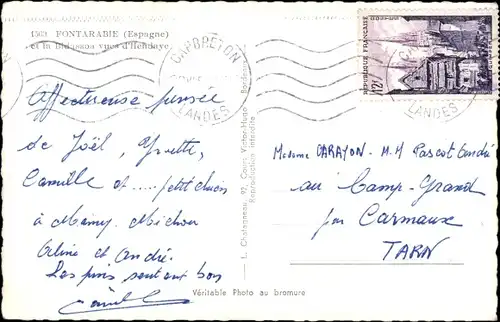 1563 FONTARABIE (Espagne)
et la Bidassoa vues d'Hendaye
CAPBRETON
LANDES
REPUBLIQUE FRANÇAISE
12F
Affectueuse pensée
de Joël, Yvette,
Camille et .... petit chien
à Mamy. Michou
Aline et André.
Les pins sentent bon
Camille
L. Chatagneau, 97, Cours Victor-Hugo - Bordeaux
Reproduction interdite
Madame CARAYON - M. M Pascot André
au Camp-Grand
par Carmaux
TARN
Véritable Photo au bromure